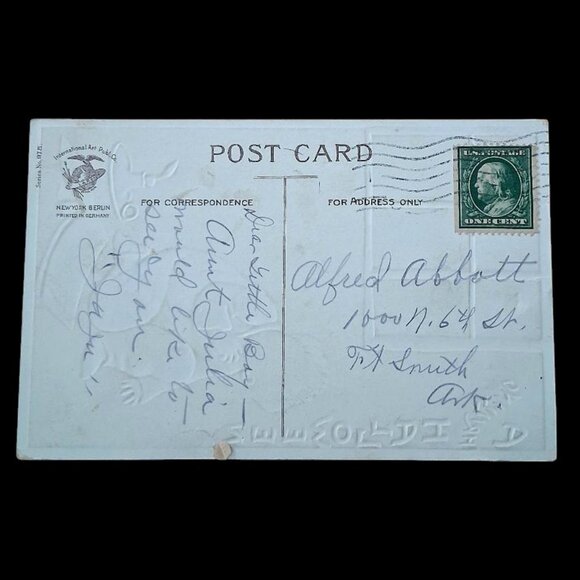 POST CARD
Series No. 978.
International Art Publ. Co.
NEW YORK BERLIN
PRINTED IN GERMANY
FOR CORRESPONDENCE
FOR ADDRESS ONLY
U.S. POSTAGE
ONE CENT
Dear Little Boy—
Aunt Julia
would like to—
see you.
"JaJu"
Alfred Abbott
1000 N. 64 St.
Ft Smith
Ark.
A
HALLOWE'EN